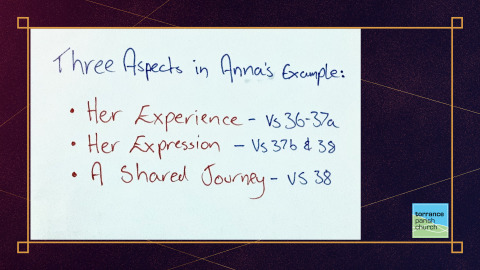 Three Aspects in Anna's Example:
• Her Experience - Vs 36-37a
• Her Expression - Vs 37b & 38
• A Shared Journey - VS 38
torrance
parish
church